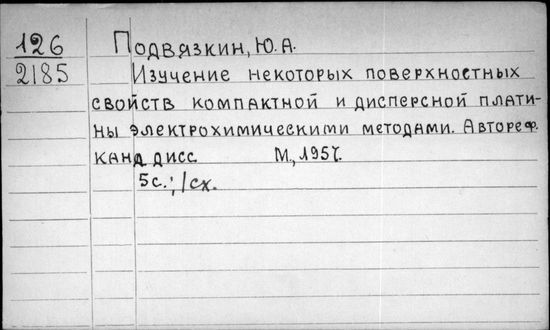 126 Подвязкин, Ю.А.
2185 Изучение некоторых поверхностных
свойств компактной и дисперсной плати-
ны электрохимическими методами. Автореф.
канд дисс. М., 1957.
5с.; 1сх.